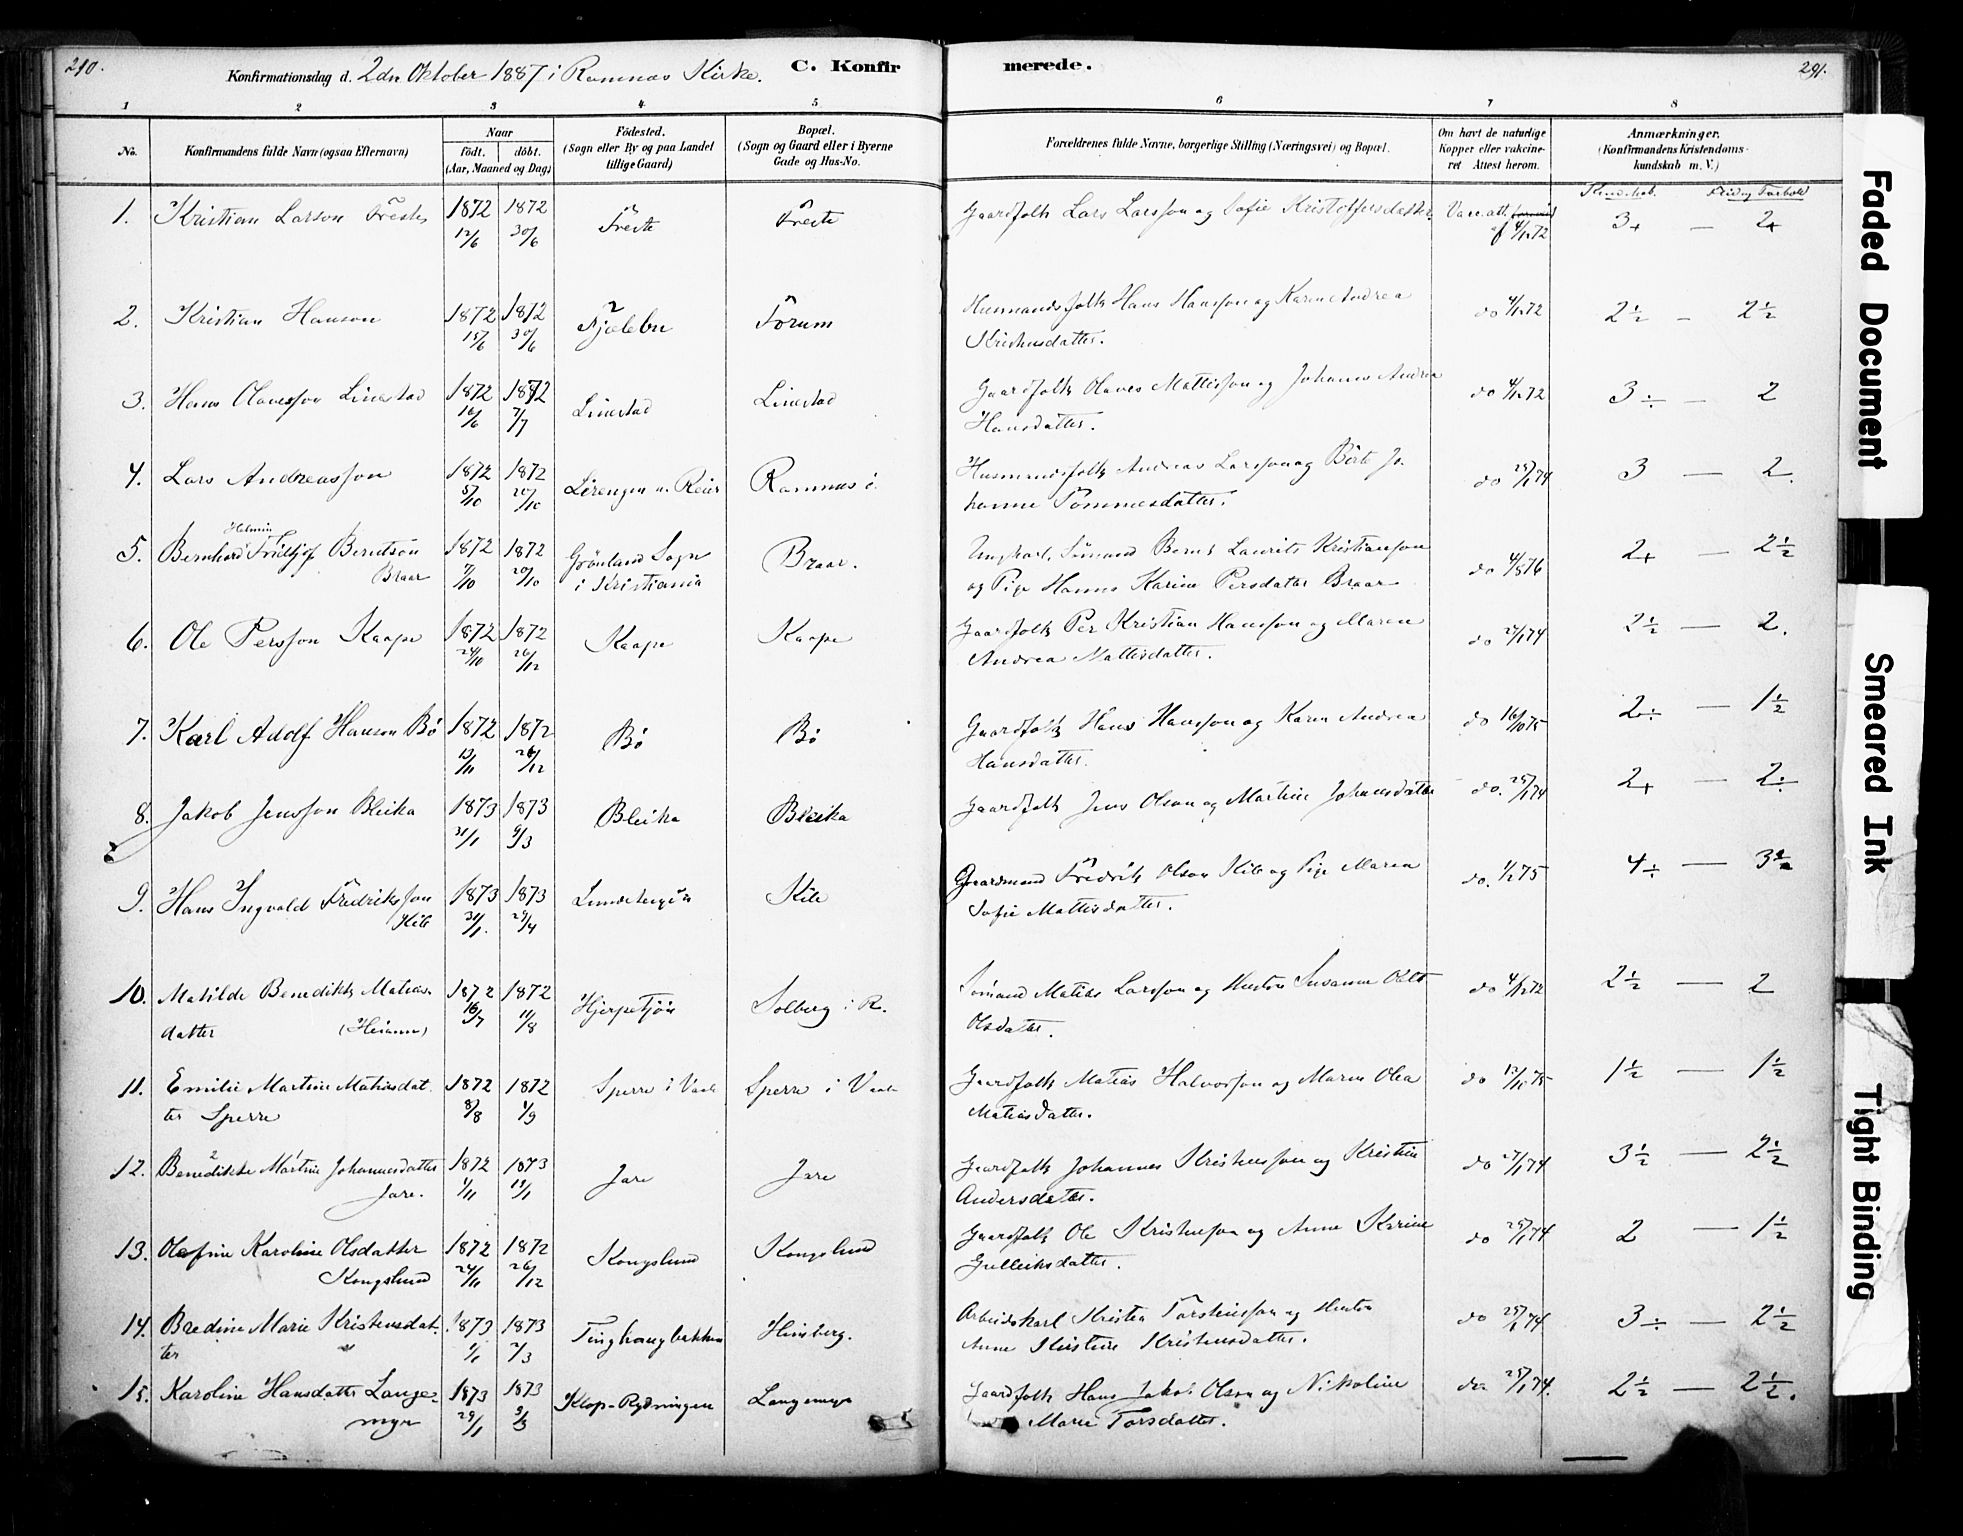 290.
Konfirmationsdag d. 2den Oktober 1887 i Ramnæs Kirke.
C. Konfirmerede.
291.
1 2 3 4 5 6 7 8
No.
Konfirmandens fulde Navn (ogsaa Efternavn)
Naar
födt. döbt.
(Aar, Maaned og Dag)
Födested.
(Sogn eller By og paa Landet
tillige Gaard)
Bopæl.
(Sogn og Gaard eller i Byerne
Gade og Hus-No.
Forældrenes fulde Navne, borgerlige Stilling (Næringsvei) og Bopæl.
Om havt de naturlige
Kopper eller vakcine-
ret Attest herom.
Anmærkninger.
(Konfirmandens Kristendoms-
kundskab m. V.)
Kundskab. Flid og Forhold
1. Kristian Larson Freste 1872 1872 Freste Freste Gaardfolk Lars Larsson og Sofie Kristoffersdatter. Vacc. att. 3+ — 2+
12/6 30/6 af 4/12 72
2. Kristian Hanson 1872 1872 Fjælebu Forum Husmandsfolk Hans Hansson og Karen Andrea do 4/12 72 2½ — 2½
15/6 30/6 Kristensdatter.
3. Hans Olavsson Linestad 1872 1872 Linestad Linestad Gaardfolk Olaves Mattisson og Johanne Andrea do 4/12 72 3÷ — 2
16/6 7/7 Hansdatter.
4. Lars Andreassøn 1872 1872 Lørengen u. Reier Ramnæs Husmandsfolk Andreas Larsson og Birte Jo- do 25/1 74 3 — 2.
5/10 20/10 hanne Tommesdatter.
5. Bernhard Helmin Fridtjof Berntson 1872 1872 Grönland Sogn Braar. Ungkarl, Sömand Bernt Laurits Kristiansson do 4/8 76 2+ — 2½
Braar 7/10 20/10 i Kristiania og Pige Hanna Karine Persdatter Braar
6. Ole Persson Kaape 1872 1872 Kaape Kaape Gaardfolk Per Kristian Hansson og Maren do 27/1 74 2½ — 2.
24/10 26/12 Andrea Mattisdatter.
7. Karl Adolf Hanson Bö 1872 1872 Bö Bö Gaardfolk Hans Hansson og Karen Andrea do 16/10 75 2÷ — 1½
13/11 26/12 Hansdatter.
8. Jakob Jensson Bleika 1873 1873 Bleika Bleika Gaardfolk Jens Olson og Martine Johannesdatter do. 25/1 74 2+ — 2÷
31/1 9/3
9. Hans Ingvald Fredriksson 1873 1873 Kile Gaardmand Fredrik Olson Kile og Pige Maren do. 1/2 75 4÷ — 3½
Kile 31/1. 29/4 Sofie Mattisdatter.
10. Matilde Benedikte Matias- 1872 1872 Hjerpetjön Solberg i R. Sömand Matias Larsson og Hustru Susanne Olea do 4/12 72 2½ — 2
datter 16/7 11/8 Olsdatter.
11. Emilie Martine Matiasdat- 1872 1872 Sperre i Vaale Sperre i Vaale Gaardfolk Matias Halvorsson og Maren Olea do 13/10 75 1½ — 1½
ter Sperre 8/8 1/9 Matiasdatter.
12. Benedikte Martine Johannesdatter 1872 1873 Jare Jare Gaardfolk Johannes Kristensson og Kristine do 27/1 74 3½ — 2½
Jare. 1/11 12/1 Andersdatter.
13. Olefine Karoline Olsdatter 1872 1872 Kongslund Kongslund Gaardfolk Ole Kristensson og Anne Karine do 25/1 74 2 — 1½
Kongslund 24/11 26/12 Gulliksdatter.
14. Bredine Marie Kristensdat- 1873 1873 Tinghaugbakken Himberg. Arbeidskarl Kristen Torstensson og Hustru do 25/1 74 3÷ — 2½
ter 1/1 2/3 Anne Kirstine Kristensdatter.
15. Karoline Hansdatter Lange- 1873 1873 Klop-Rydningen Langemyr Gaardfolk Hans Jakob Olson og Nikoline do 25/1 74. 2½ — 2½.
myr 29/1 9/3 Marie Torsdatter.
Faded Document
Smeared Ink
Tight Binding